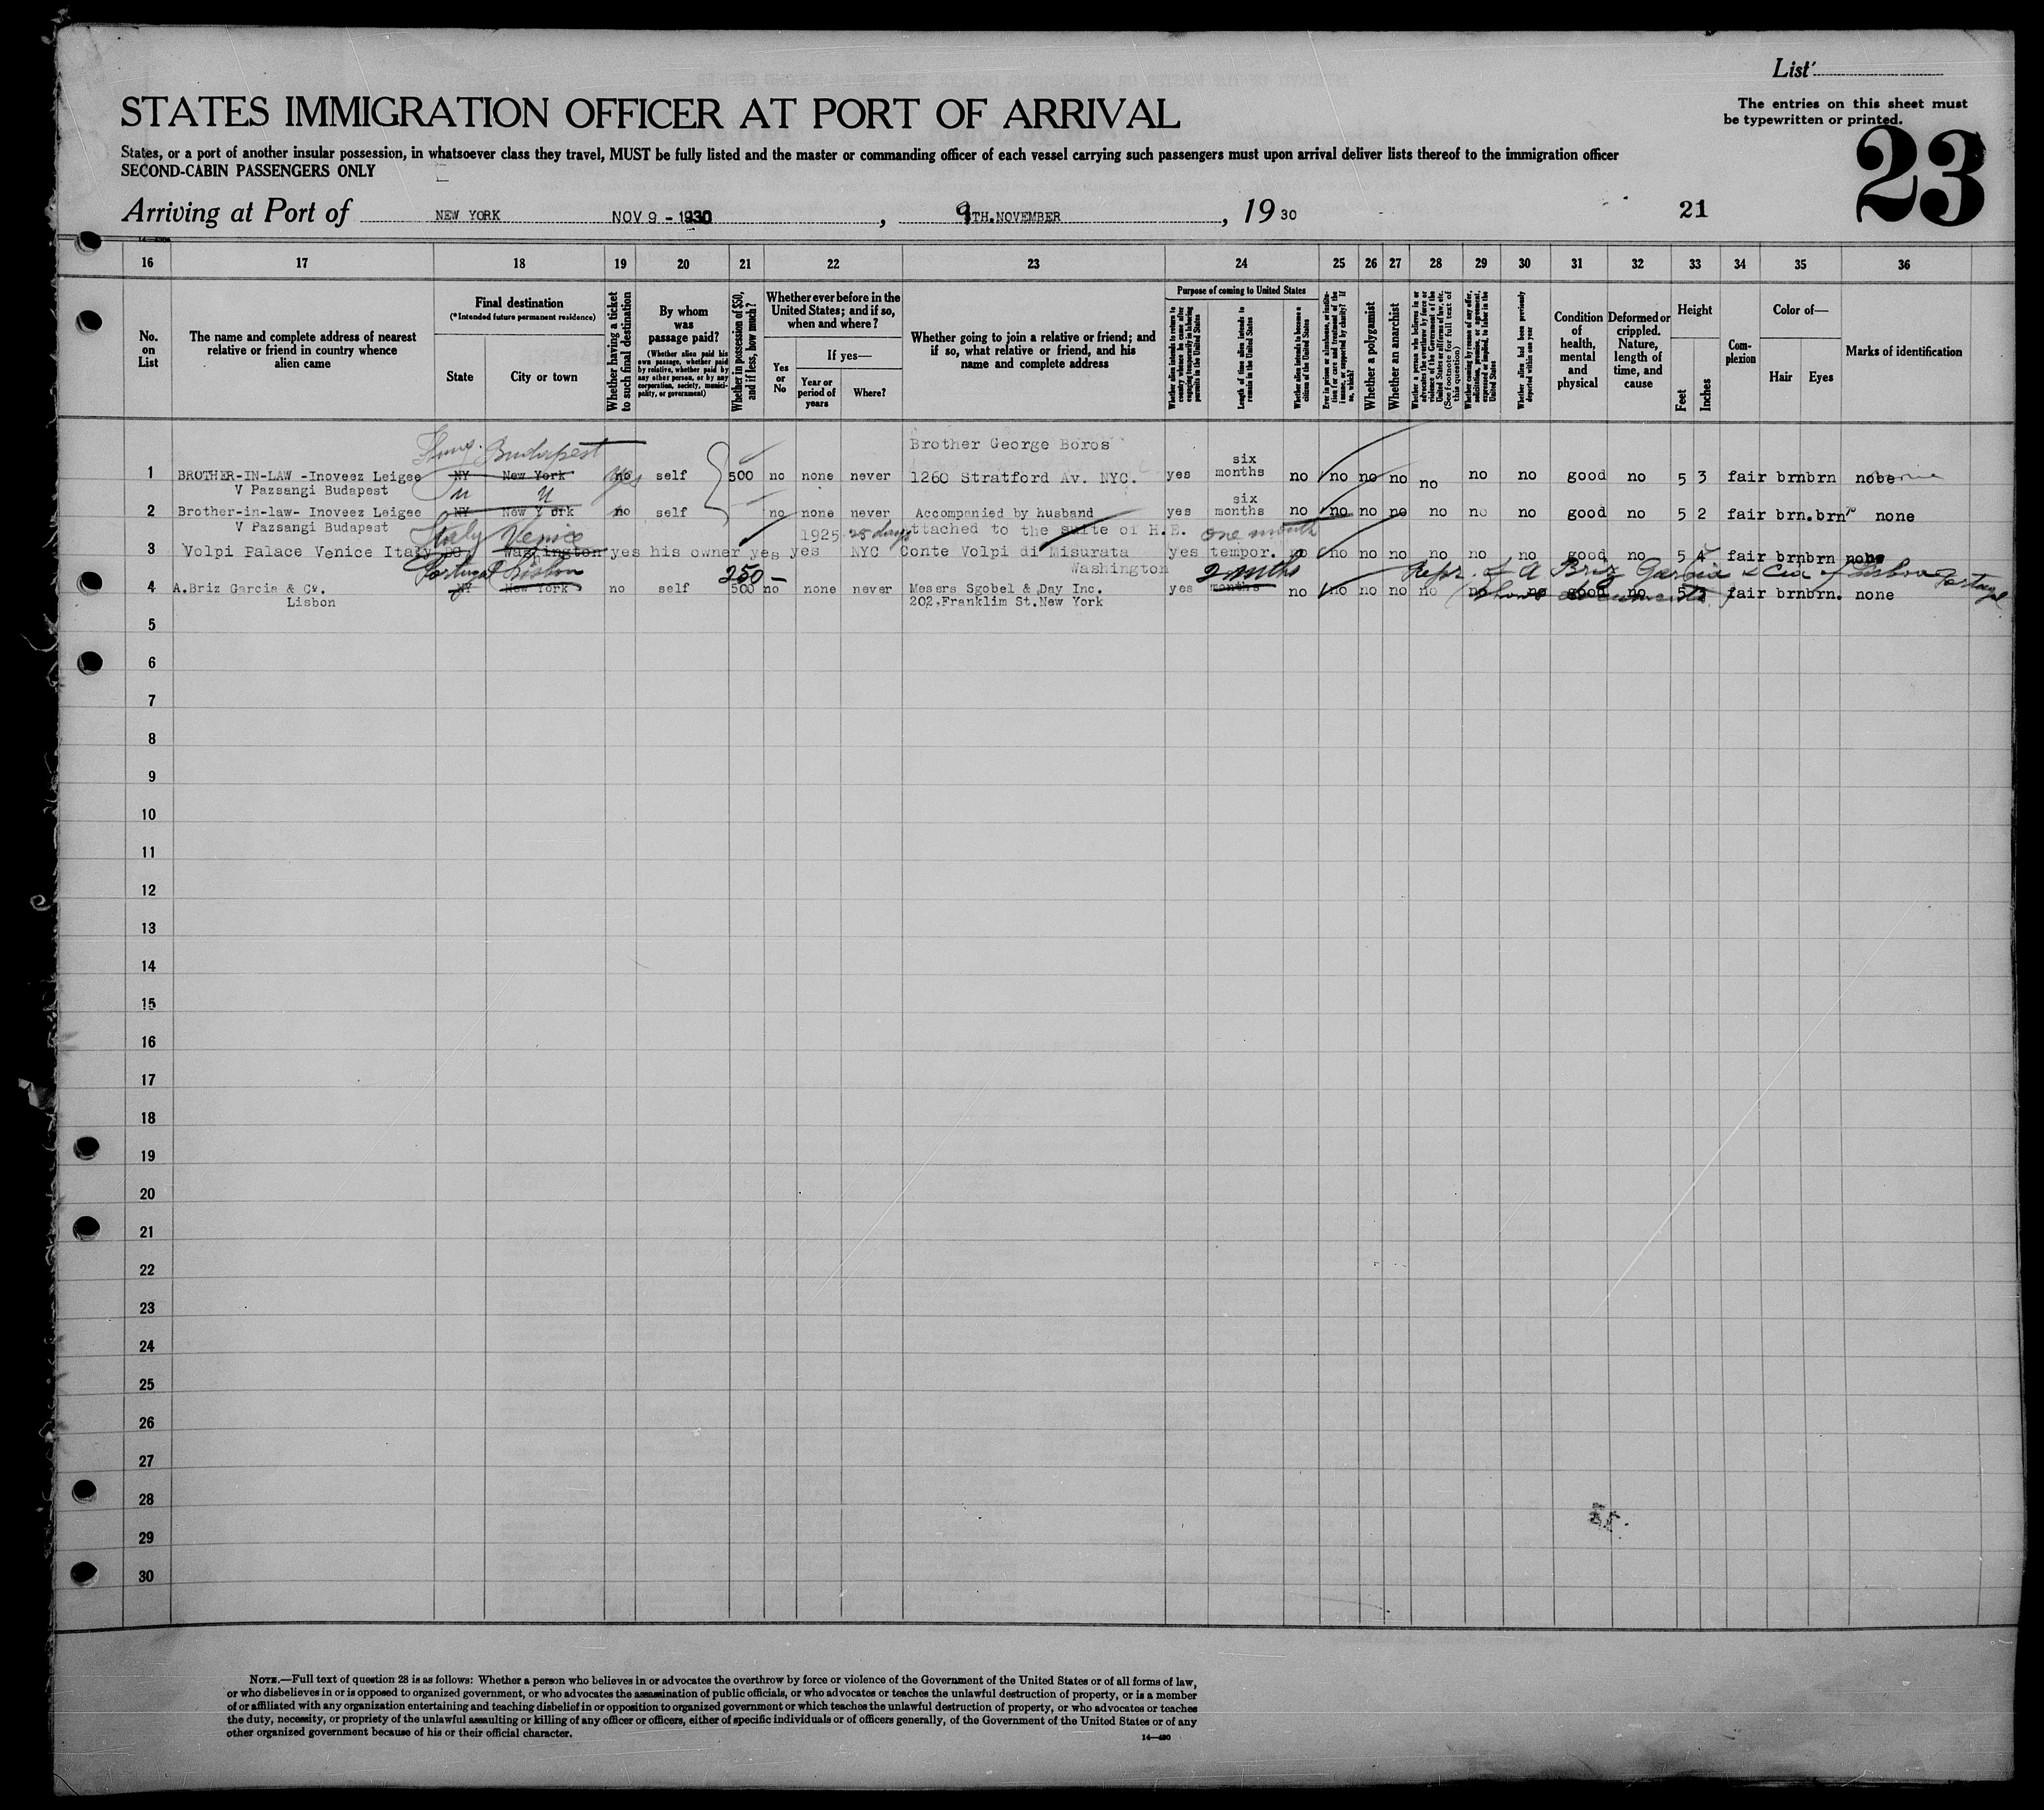 List
The entries on this sheet must
be typewritten or printed.
STATES IMMIGRATION OFFICER AT PORT OF ARRIVAL
States, or a port of another insular possession, in whatsoever class they travel, MUST be fully listed and the master or commanding officer of each vessel carrying such passengers must upon arrival deliver lists thereof to the immigration officer
SECOND-CABIN PASSENGERS ONLY
23
Arriving at Port of NEW YORK NOV 9 - 1930, 9TH.NOVEMBER, 19 30
21
16 17 18 19 20 21 22 23 24 25 26 27 28 29 30 31 32 33 34 35 36
No.
on
List
The name and complete address of nearest
relative or friend in country whence
alien came
Final destination
(*Intended future permanent residence)
State
City or town
Whether having a ticket
to such final destination
By whom
was
passage paid?
(Whether alien paid his
own passage, whether paid
by relative, whether paid by
any other person, or by any
corporation, society, munici-
pality, or government)
Whether in possession of $50,
and if less, how much?
Whether ever before in the
United States; and if so,
when and where?
Yes
or
No
If yes—
Year or
period of
years
Where?
Whether going to join a relative or friend; and
if so, what relative or friend, and his
name and complete address
Purpose of coming to United States
Whether alien intends to return to
country whence he came after
engaging temporarily in laboring
pursuits in the United States
Length of time alien intends to
remain in the United States
Whether alien intends to become a
citizen of the United States
Ever in prison or almshouse, or institu-
tion for care and treatment of the
insane, or supported by charity? If
so, which?
Whether a polygamist
Whether an anarchist
Whether a person who believes in or
advocates the overthrow by force or
violence of the Government of the
United States or all forms of law, etc.
(See footnote for full text of
this question)
Whether coming by reason of any offer,
solicitation, promise, or agreement,
expressed or implied, to labor in the
United States
Whether alien had been previously
deported within one year
Condition
of
health,
mental
and
physical
Deformed or
crippled.
Nature,
length of
time, and
cause
Height
Feet
Inches
Com-
plexion
Color of—
Hair
Eyes
Marks of identification
Budapest
Brother George Boros
six
1 BROTHER-IN-LAW -Inoveez Leigee NY New York no yes self 500 no none never 1260 Stratford Av. NYC. yes months no no no no no no no good no 5 3 fair brn brn none
V Pazsangi Budapest
six
2 Brother-in-law- Inoveez Leigee NY New Y ork no self no none never Accompanied by husband yes months no no no no no no no good no 5 2 fair brn. brn none
V Pazsangi Budapest
Italy Venice 1925 25 days attached to the suite of H.E. one month
3 Volpi Palace Venice Italy DC Washington yes his owner yes yes NYC Conte Volpi di Misurata yes tempor. no no no no no no no good no 5 4 fair brn brn none
Washington
Portugal Lisbon 250 - 2 mths Repr. of A Briz Garcia & Cia of Lisbon Portugal
4 A.Briz Garcia & Cº. NY New York no self 500 no none never Messrs Sgobel & Day Inc. yes months no no no no no no no good no 5 fair brn brn. none
Shows documents
Lisbon 202.Franklim St.New York
5
6
7
8
9
10
11
12
13
14
15
16
17
18
19
20
21
22
23
24
25
26
27
28
29
30
NOTE.—Full text of question 28 is as follows: Whether a person who believes in or advocates the overthrow by force or violence of the Government of the United States or of all forms of law,
or who disbelieves in or is opposed to organized government, or who advocates the assassination of public officials, or who advocates or teaches the unlawful destruction of property, or is a member
of or affiliated with any organization entertaining and teaching disbelief in or opposition to organized government or which teaches the unlawful destruction of property, or who advocates or teaches
the duty, necessity, or propriety of the unlawful assaulting or killing of any officer or officers, either of specific individuals or of officers generally, of the Government of the United States or of any
other organized government because of his or their official character.
14—430